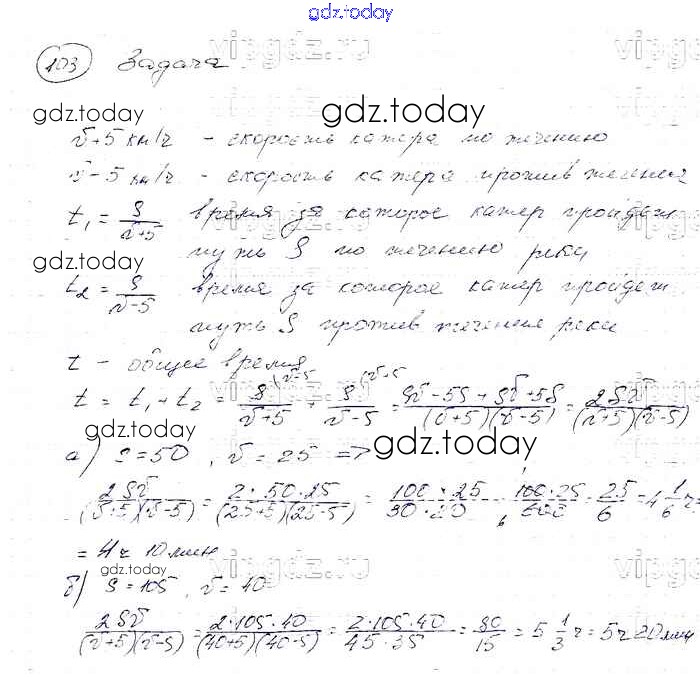 gdz.today
vipgdz.ru
103 Задача
gdz.today
gdz.today
v+5 км/ч - скорость катера по течению
v-5 км/ч - скорость катера против течения
t₁ = S/(v+5) время за которое катер пройдет
путь S по течению реки
gdz.today
t₂ = S/(v-5) время за которое катер пройдет
путь S против течения реки
t - общее время
t = t₁ + t₂ = S/(v+5) + S/(v-5) = (Sv-5S+Sv+5S)/((v+5)(v-5)) = 2Sv/((v+5)(v-5))
gdz.today
gdz.today
а) S=50, v=25 =>
2Sv/((v+5)(v-5)) = 2·50·25/((25+5)(25-5)) = 100·25/(30·20) = 100·25/600 = 25/6 = 4 1/6 ч =
= 4ч 10мин
gdz.today
vipgdz.ru
б) S=105, v=40
2Sv/((v+5)(v-5)) = 2·105·40/((40+5)(40-5)) = 2·105·40/(45·35) = 80/15 = 5 1/3 ч = 5ч 20мин
gdz.today